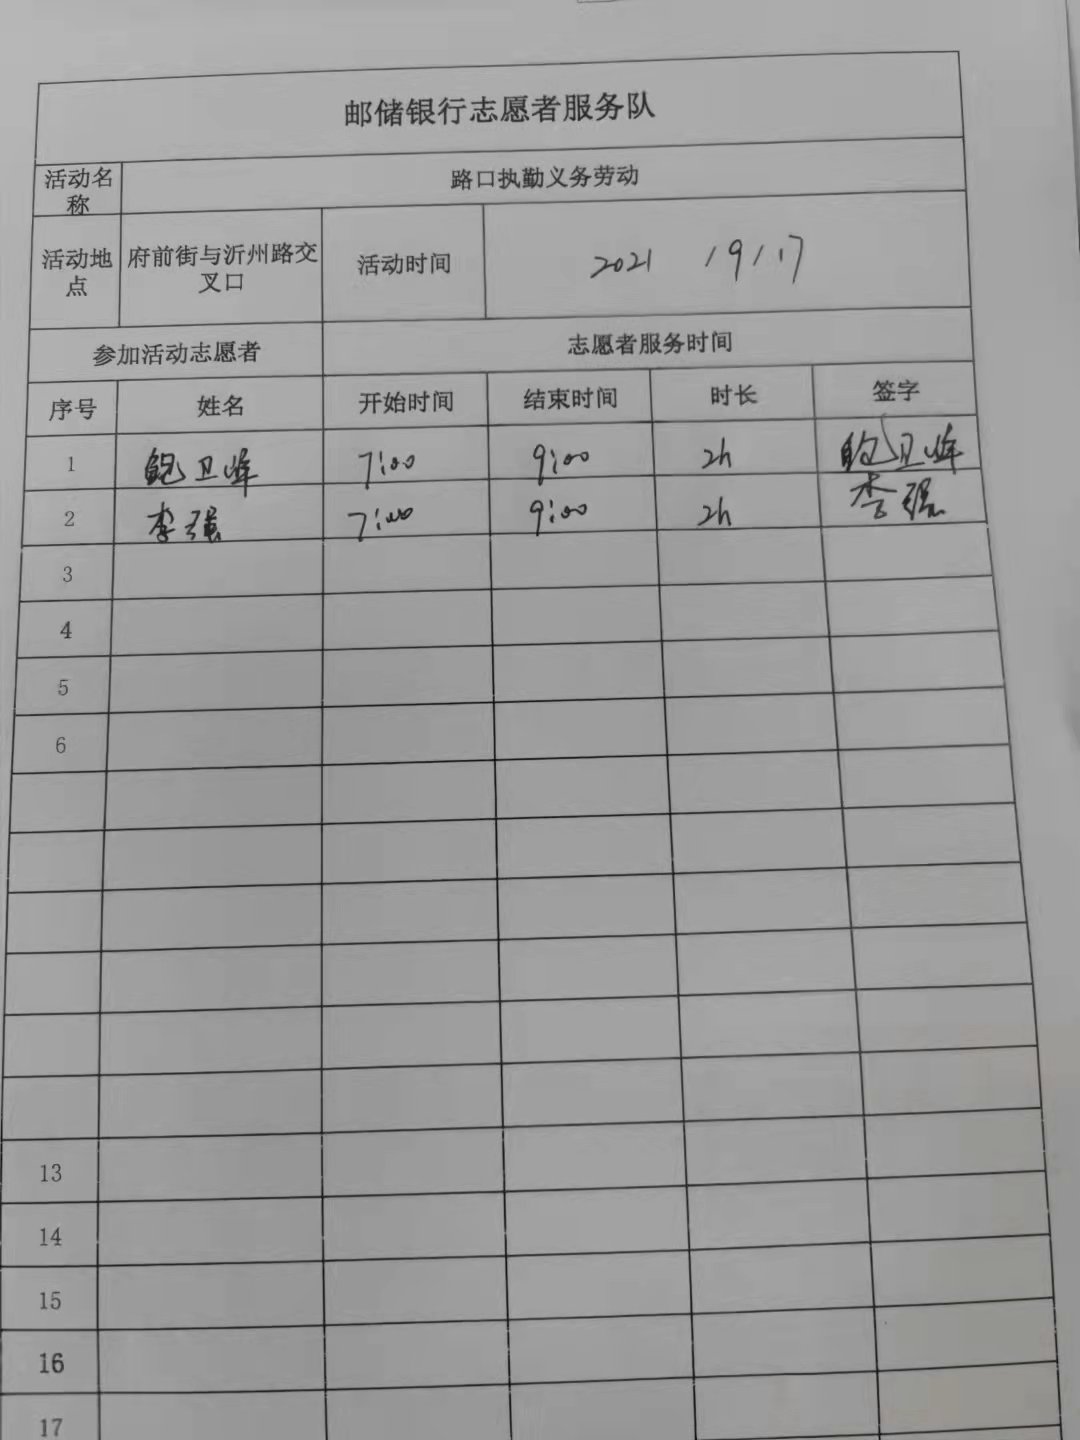 邮储银行志愿者服务队
活动名称 路口执勤义务劳动
活动地点 府前街与沂州路交叉口 活动时间 2021 / 9 / 17
参加活动志愿者 志愿者服务时间
序号 姓名 开始时间 结束时间 时长 签字
1 鲍卫峰 7:00 9:00 2h 鲍卫峰
2 李强 7:00 9:00 2h 李强
3
4
5
6
13
14
15
16
17